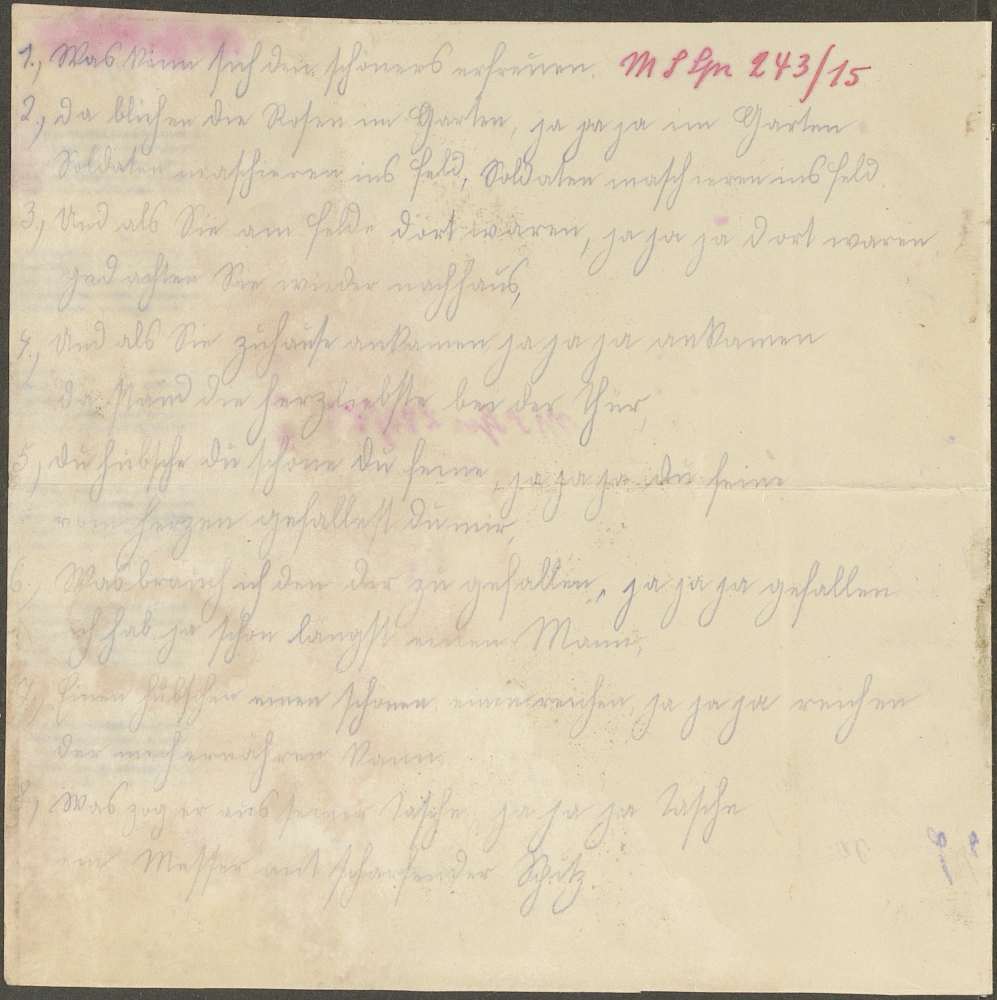 1., Was kann sich den schöners erfreuen. MS Gn 243/15
2., da blichen die Rosen im Garten, ja ja ja im Garten
Soldaten maschieren ins feld, Soldaten maschieren ins feld
3., Und als Sie am felde dort waren, ja ja ja dort waren
gedachten Sie wieder nachhaus,
4., Und als Sie zuhause ankamen ja ja ja ankamen
da stand die herzliebste bei der Thür,
5., du hübsche du schöne du feine, ja ja ja du feine
vom herzen gefallest du mir,
6., Was brauch ich den dir zu gefallen, ja ja ja gefallen
ich hab ja schon längst einen Mann,
7., Einen hübschen einen schönen einen reichen, ja ja ja reichen
der mich ernähren kann.
8., Was zog er aus seiner Tasche, ja ja ja Tasche
ein Messer mit scharfender Spitz.